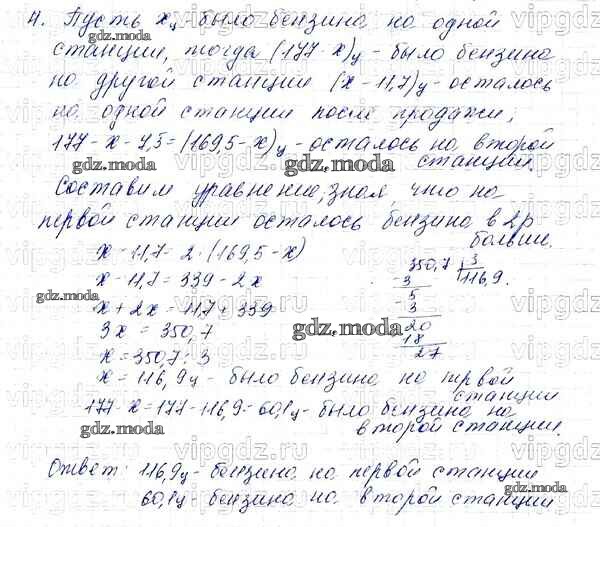 4. Пусть x ц было бензина на одной
станции, тогда (177-x)ц - было бензина
на другой станции (x-11,7)ц - осталось
на одной станции после продажи;
177-x-7,5=(169,5-x)ц - осталось на второй
станции.
Составим уравнение, зная, что на
первой станции осталось бензина в 2р
больше.
x-11,7=2·(169,5-x)
x-11,7=339-2x
x+2x=11,7+339
3x=350,7
x=350,7:3
350,7 3
3 116,9.
5
3
20
18
27
x=116,9ц - было бензина на первой
станции
177-x=177-116,9=60,1ц - было бензина на
второй станции.
Ответ: 116,9ц - бензина на первой станции
60,1ц - бензина на второй станции
gdz.moda
gdz.moda
gdz.moda
gdz.moda
gdz.moda
gdz.moda
gdz.moda
gdz.moda
gdz.moda
vipgdz.ru